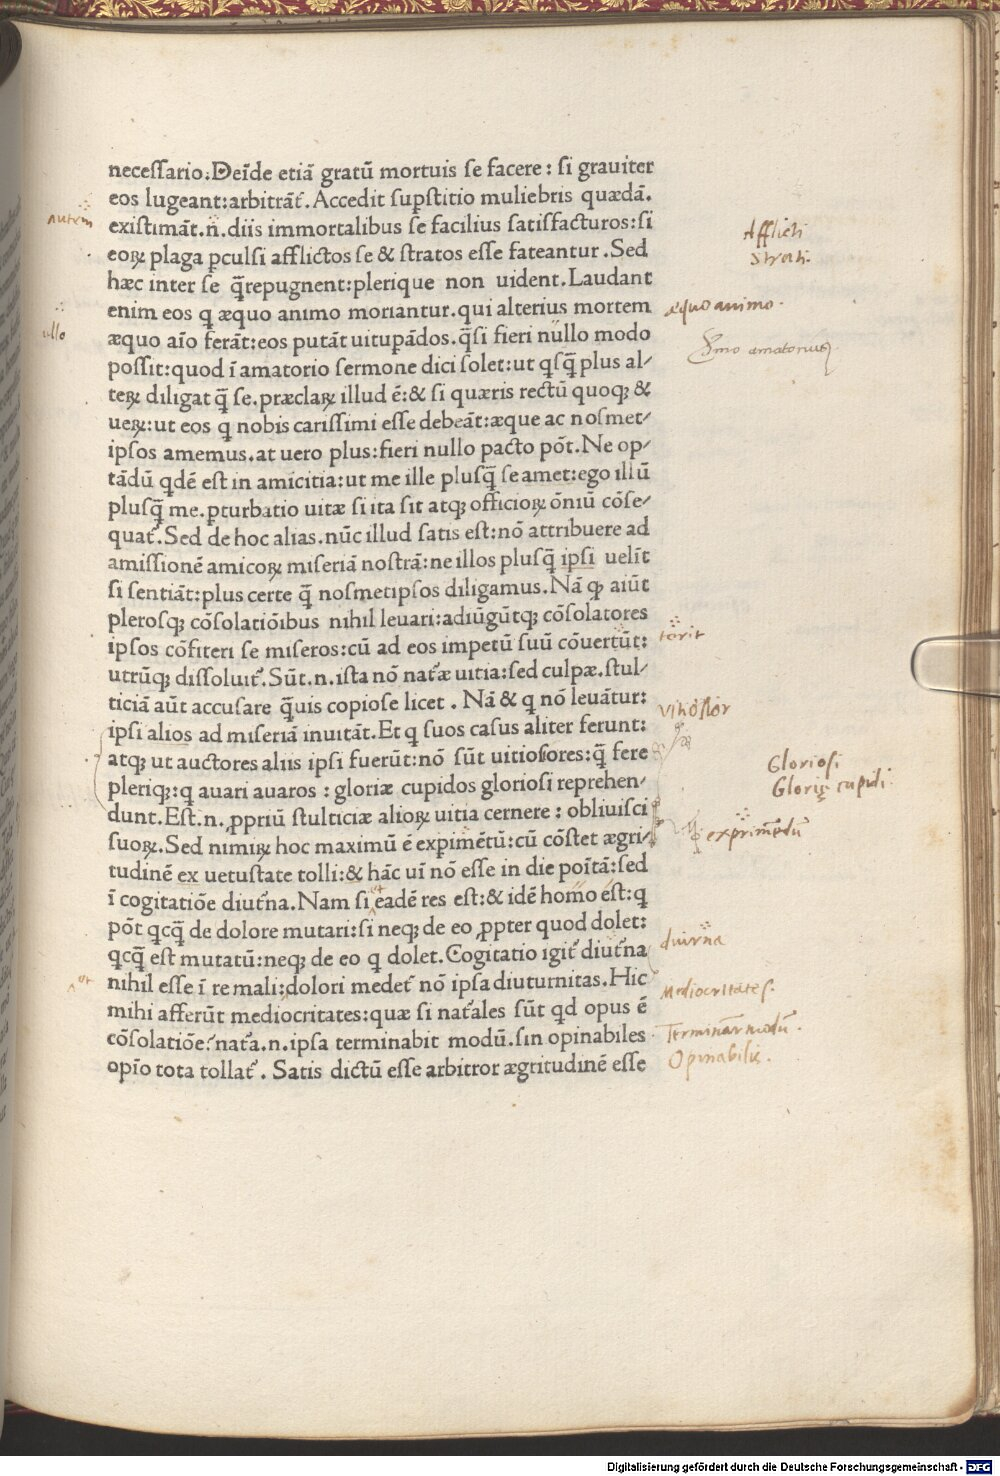 necessario. Deīde etiā gratū mortuis se facere: si grauiter
eos lugeant: arbitrāt᷑. Accedit supstitio muliebris quædā.
autem
existimāt.n̄.diis immortalibus se facilius satisfacturos: si
Afflicti
eoꝝ plaga pculsi afflictos se & stratos esse fateantur. Sed
Strati.
hæc inter se q̄repugnent: plerique non uident. Laudant
enim eos q æquo animo moriantur. qui alterius mortem
æquo animo.
ullo
æquo aīo ferāt: eos putāt uitupādos. q̄si fieri nullo modo
Sermo amatorius
possit: quod ī amatorio sermone dici solet: ut qsq̄ plus al/
teꝝ diligat q̄ se. præclaꝝ illud ē: & si quæris rectū quoqꝫ &
ueꝝ: ut eos q nobis carissimi esse debeāt: æque ac nosmet/
ipsos amemus. at uero plus: fieri nullo pacto pōt. Ne op/
tādū qdē est in amicitia: ut me ille plusq̄ se amet: ego illū
plusq̄ me. pturbatio uitæ si ita sit atqꝫ officioꝝ ōniū cōse/
quat᷑. Sed de hoc alias. nūc illud satis est: nō attribuere ad
amissionē amicoꝝ miseriā nostrā: ne illos plusq̄ ipsi uelīt
si sentiāt: plus certe q̄ nosmetipsos diligamus. Nā ꝙ aiūt
plerosqꝫ cōsolatiōibus nihil leuari: adiūgūtqꝫ cōsolatores
torit
ipsos cōfiteri se miseros: cū ad eos impetū suū cōuertūt:
utrūqꝫ dissoluit᷑. Sūt.n.ista nō nat᷑æ uitia: sed culpæ. stul/
ticiā aūt accusare q̄uis copiose licet. Nā & q nō leuātur:
ipsi alios ad miseriā inuitāt. Et q suos casus aliter ferunt:
atqꝫ ut auctores aliis ipsi fuerūt: nō sūt uitiosores: q̄ fere
Gloriosi
pleriqꝫ: q auari auaros: gloriæ cupidos gloriosi reprehen/
Glorię cupidi
dunt. Est.n.ꝓpriū stulticiæ alioꝝ uitia cernere: obliuisci
suoꝝ. Sed nimiꝝ hoc maximū ē expimētū: cū cōstet ægri/
tudinē ex uetustate tolli: & hāc uī nō esse in die poītā: sed
et
ī cogitatiōe diut᷑na. Nam si eadē res est: & idē homo est: q
pōt qcq̄ de dolore mutari: si neqꝫ de eo ꝓpter quod dolet:
qcq̄ est mutatū: neqꝫ de eo q dolet. Cogitatio igit᷑ diut᷑na
nihil esse ī re mali: dolori medet᷑ nō ipsa diuturnitas. Hic
Mediocritates.
mihi afferūt mediocritates: quæ si nat᷑ales sūt qd opus ē
cōsolatiōe? nat᷑a.n.ipsa terminabit modū. sin opinabiles
Terminar modū.
opīo tota tollat᷑. Satis dictū esse arbitror ægritudinē esse
Opinabilis.
Digitalisierung gefördert durch die Deutsche Forschungsgemeinschaft - DFG